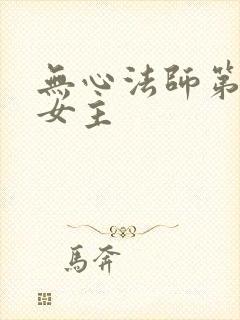 無心法師第
女主
馬奔